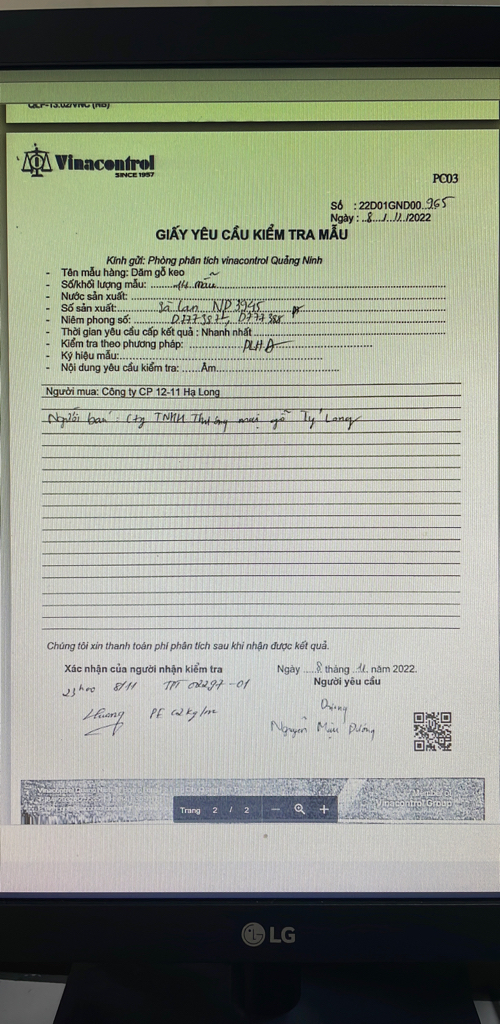 QLP-13.02/VNC (NB)
Vinacontrol
SINCE 1957
PC03
Số : 22D01GND00..965
Ngày : ..8../..11../2022
GIẤY YÊU CẦU KIỂM TRA MẪU
Kính gửi: Phòng phân tích vinacontrol Quảng Ninh
- Tên mẫu hàng: Dăm gỗ keo
- Số/khối lượng mẫu: mẫu
- Nước sản xuất:
- Số sản xuất: Sà lan NĐ 3945
- Niêm phong số:
- Thời gian yêu cầu cấp kết quả : Nhanh nhất
- Kiểm tra theo phương pháp:
- Ký hiệu mẫu:
- Nội dung yêu cầu kiểm tra: ......Ẩm
Người mua: Công ty CP 12-11 Hạ Long
Người bán : Cty TNHH Thương mại gỗ Tý Long
Chúng tôi xin thanh toán phí phân tích sau khi nhận được kết quả.
Xác nhận của người nhận kiểm tra
Ngày ....8 tháng ..11.. năm 2022.
Người yêu cầu
23h00 8/11
Hương PE
Dương
Nguyễn Dương
Vinacontrol Group
Trang 2 / 2 − +
LG